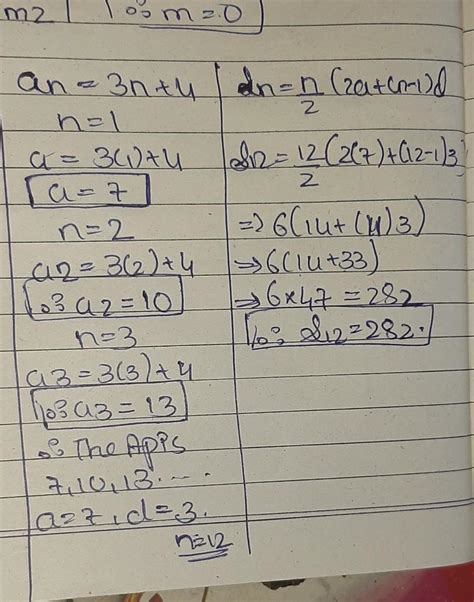 m2
∴ m=0
an = 3n+4
n=1
a = 3(1)+4
a = 7
n=2
a2 = 3(2)+4
∴ a2 = 10
n=3
a3 = 3(3)+4
∴ a3 = 13
∴ The AP is
7, 10, 13 .....
a=7, d=3.
n=12
Sn = n/2 (2a+(n-1)d
S12 = 12/2 (2(7)+(12-1)3
⇒ 6(14+(11)3)
⇒ 6(14+33)
⇒ 6×47 = 282
∴ S12 = 282.